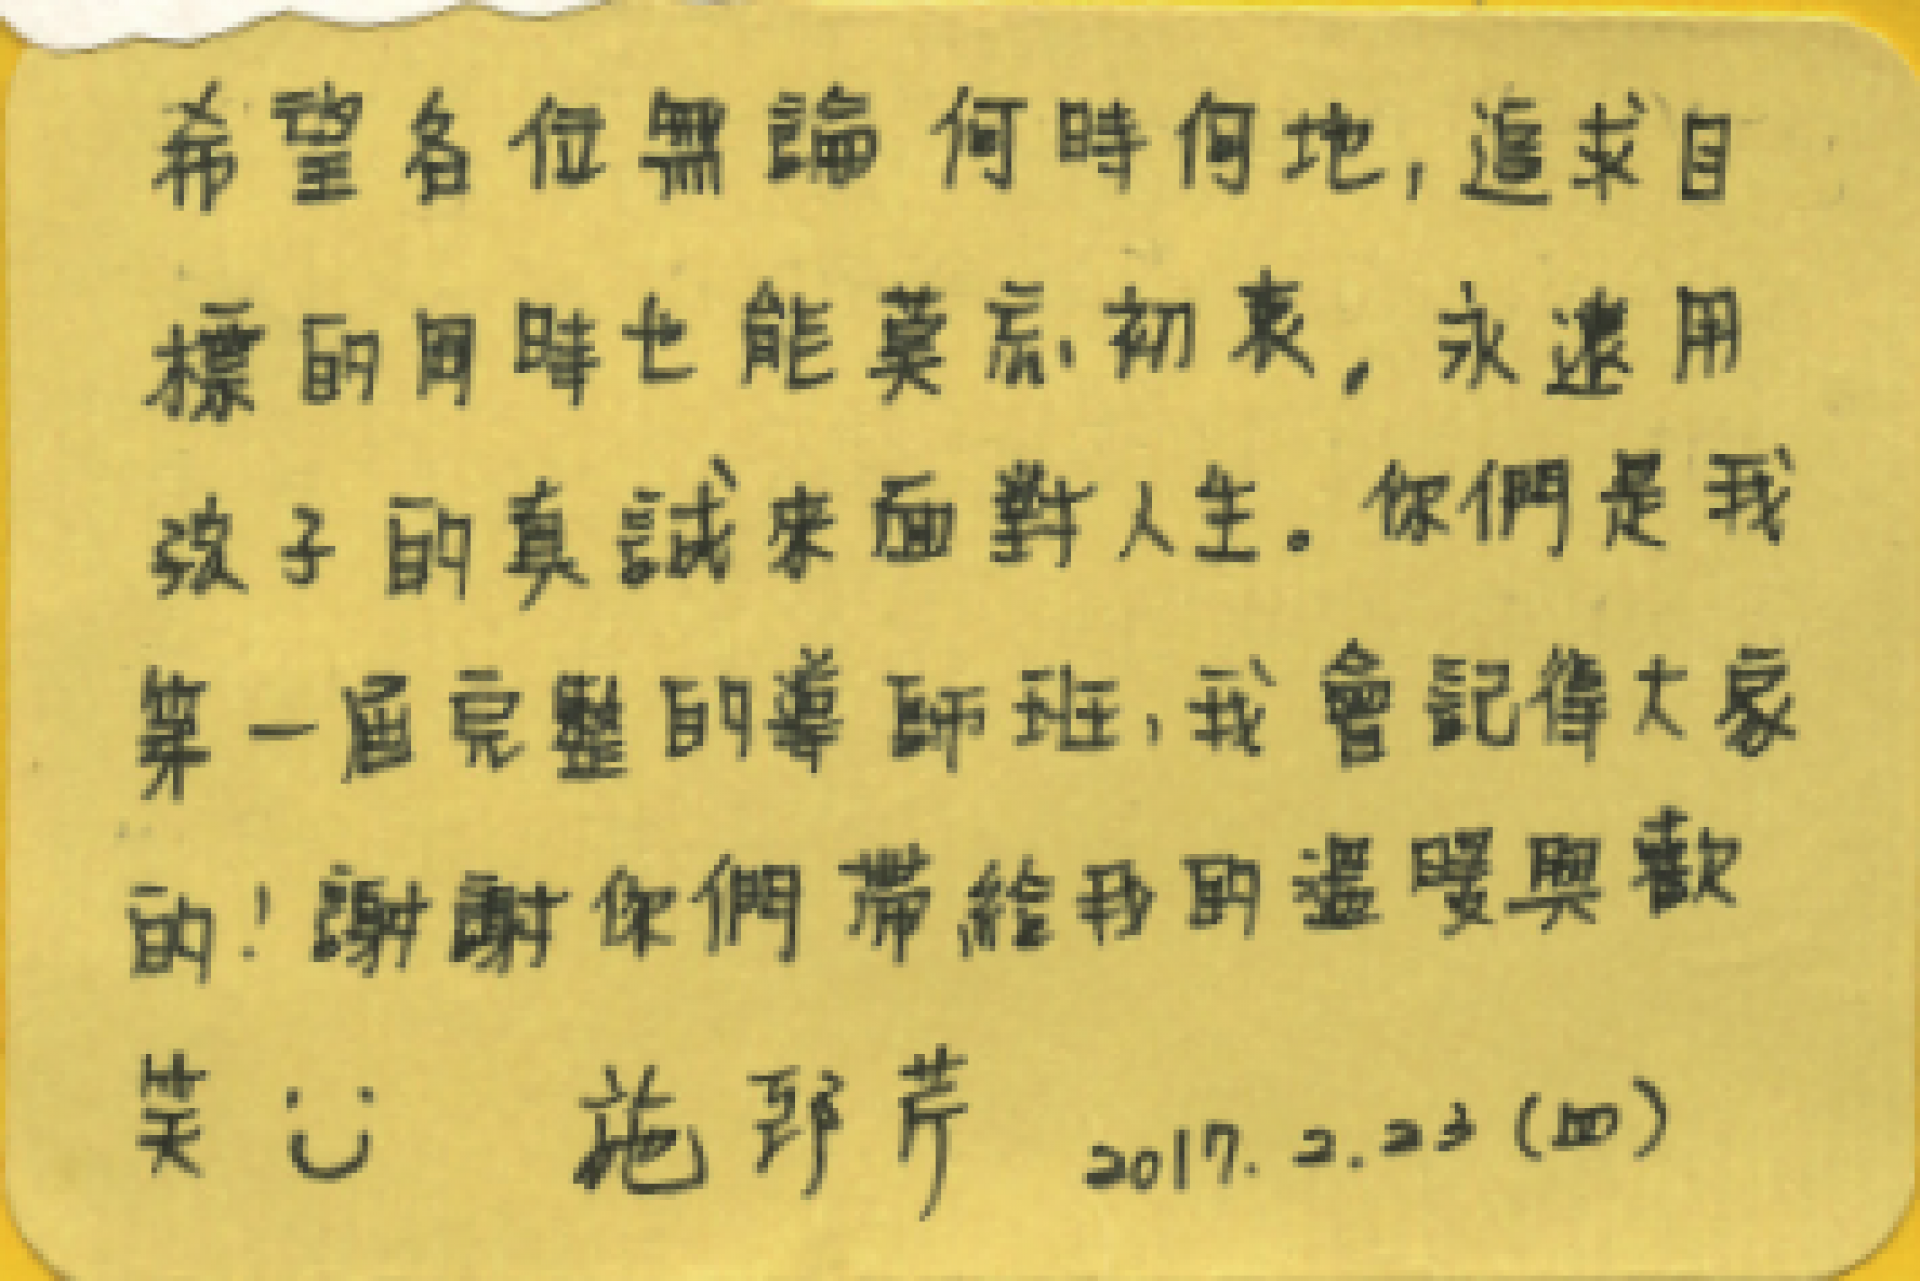 希望各位無論何時何地，追求目
標的同時也能莫忘初衷，永遠用
孩子的真誠來面對人生。你們是我
第一屆完整的導師班，我會記得大家
的！謝謝你們帶給我的溫暖與歡
笑 施 芹 2017.2.23(四)